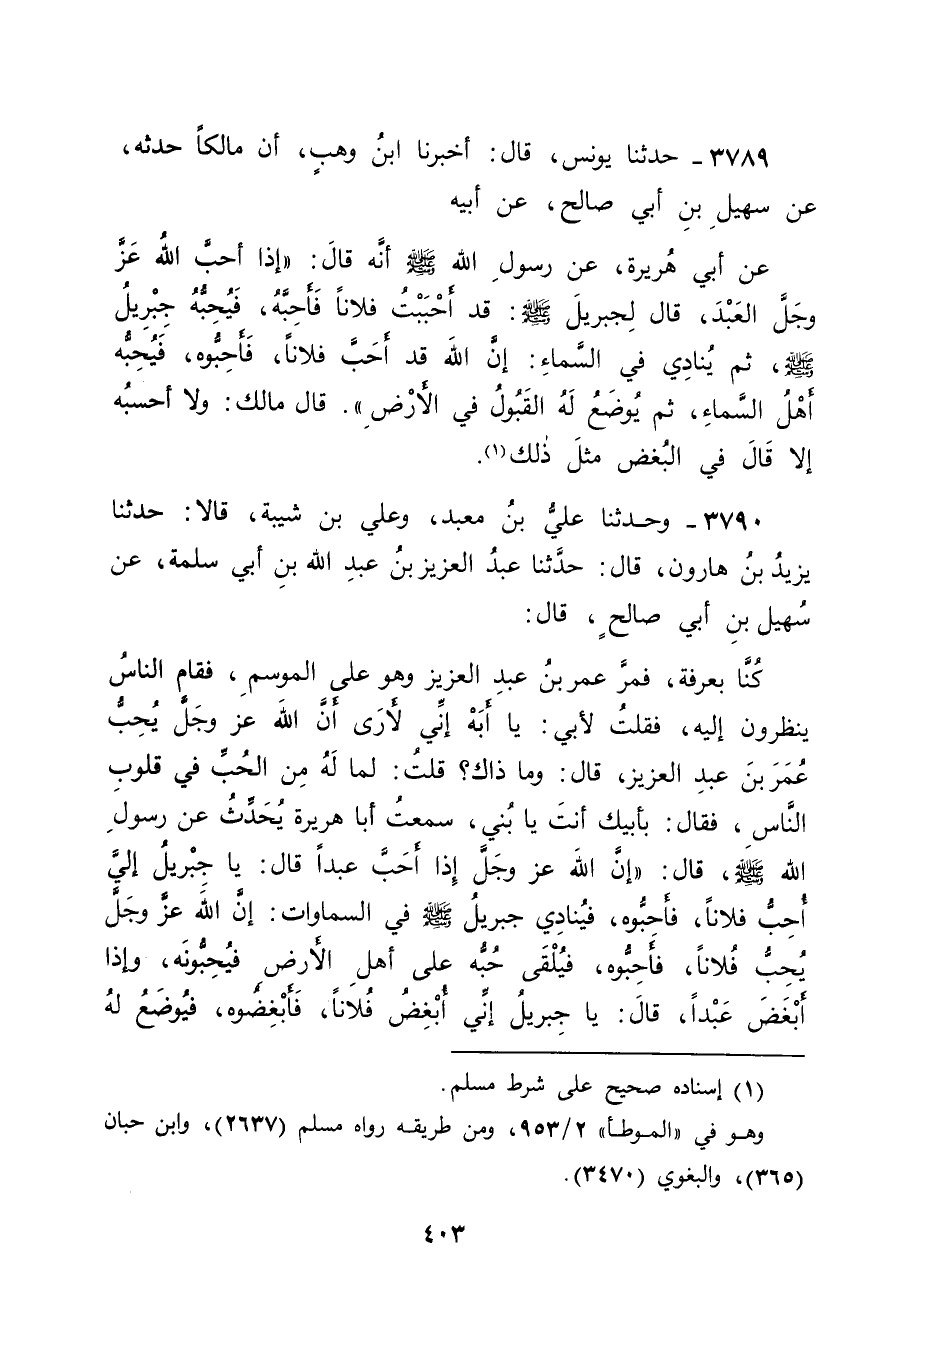 ٣٧٨٩ - حدثنا يونس، قال: أخبرنا ابنُ وهبٍ، أن مالكاً حدثه،
عن سهيلِ بنِ أبي صالح، عن أبيه
عن أبي هُريرة، عن رسولِ الله ﷺ أنَّه قالَ: «إذا أحبَّ اللهُ عَزَّ
وجَلَّ العَبْدَ، قال لِجبريلَ ﷺ: قد أَحْبَبْتُ فلاناً فَأَحِبَّهُ، فَيُحِبُّهُ جِبْرِيلُ
ﷺ، ثم يُنادِي في السَّماءِ: إنَّ اللهَ قد أَحَبَّ فلاناً، فَأَحِبُّوه، فَيُحِبُّه
أَهْلُ السَّماءِ، ثم يُوضَعُ لَهُ القَبُولُ في الأَرْضِ». قال مالك: ولا أحسبُه
إلا قَالَ في البُغض مثلَ ذٰلك(١).
٣٧٩٠ - وحـدثنا عليُّ بنُ معبد، وعلي بن شيبة، قالا: حدثنا
يزيدُ بنُ هارون، قال: حدَّثنا عبدُ العزيز بنُ عبدِ الله بنِ أبي سلمة، عن
سُهيل بنِ أبي صالحٍ، قال:
كُنَّا بعرفة، فمرَّ عمر بنُ عبدِ العزيز وهو على الموسمِ، فقام الناسُ
ينظرون إليه، فقلتُ لأبي: يا أَبَهْ إنِّي لأَرَى أَنَّ اللهَ عز وجَلَّ يُحِبُّ
عُمَرَ بنَ عبدِ العزيز، قال: وما ذاك؟ قلتُ: لما لَهُ مِن الحُبِّ في قلوبِ
النَّاسِ، فقال: بأبيك أنتَ يا بُني، سمعتُ أبا هريرة يُحَدِّثُ عن رسولِ
الله ﷺ، قال: «إنَّ اللهَ عز وجَلَّ إذا أَحَبَّ عبداً قال: يا جِبْريلُ إنِّي
أُحِبُّ فلاناً، فأَحِبُّوه، فيُنادِي جبريلُ ﷺ في السماوات: إنَّ اللهَ عزَّ وجَلَّ
يُحِبُّ فُلاناً، فأَحِبُّوه، فيُلْقَى حُبُّه على أهلِ الأَرضِ فيُحِبُّونَه، وإذا
أَبْغَضَ عَبْداً، قالَ: يا جِبريلُ إنِّي أُبْغِضُ فُلاناً، فَأَبْغِضُوه، فيُوضَعُ لهُ
(١) إسناده صحيح على شرط مسلم.
وهـو في «الموطـأ» ٩٥٣/٢، ومن طريقـه رواه مسلم (٢٦٣٧)، وابن حبان
(٣٦٥)، والبغوي (٣٤٧٠).
٤٠٣